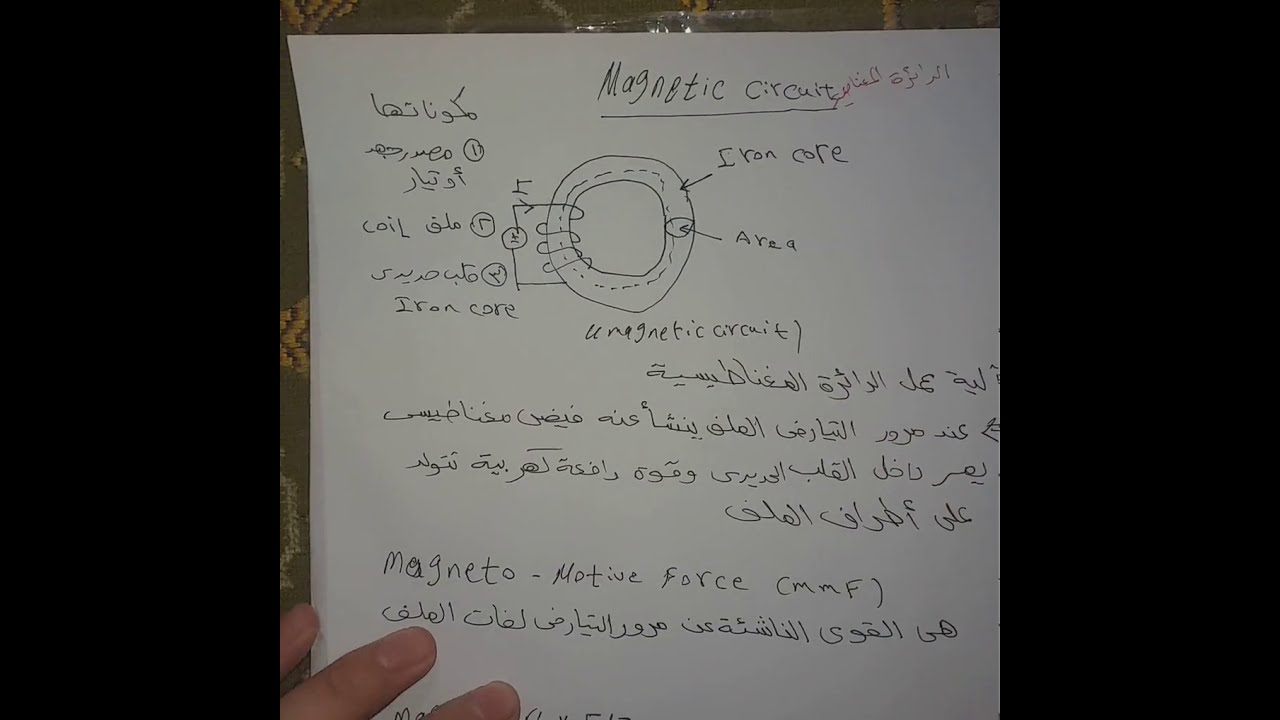 Magnetic circuit الدائرة المغناطيسية
مكوناتها
① مصدر جهد
أو تيار
② ملف coil
③ قلب حديدى
Iron core
I
Iron core
Area
(magnetic circuit)
آلية عمل الدائرة المغناطيسية
عند مرور التيار فى الملف ينشأ عنه فيض مغناطيسى
يمر داخل القلب الحديدى وقوة دافعة كهربية تتولد
على أطراف الملف
Magneto - Motive Force (mmF)
هى القوى الناشئة عن مرور التيار فى لفات الملف